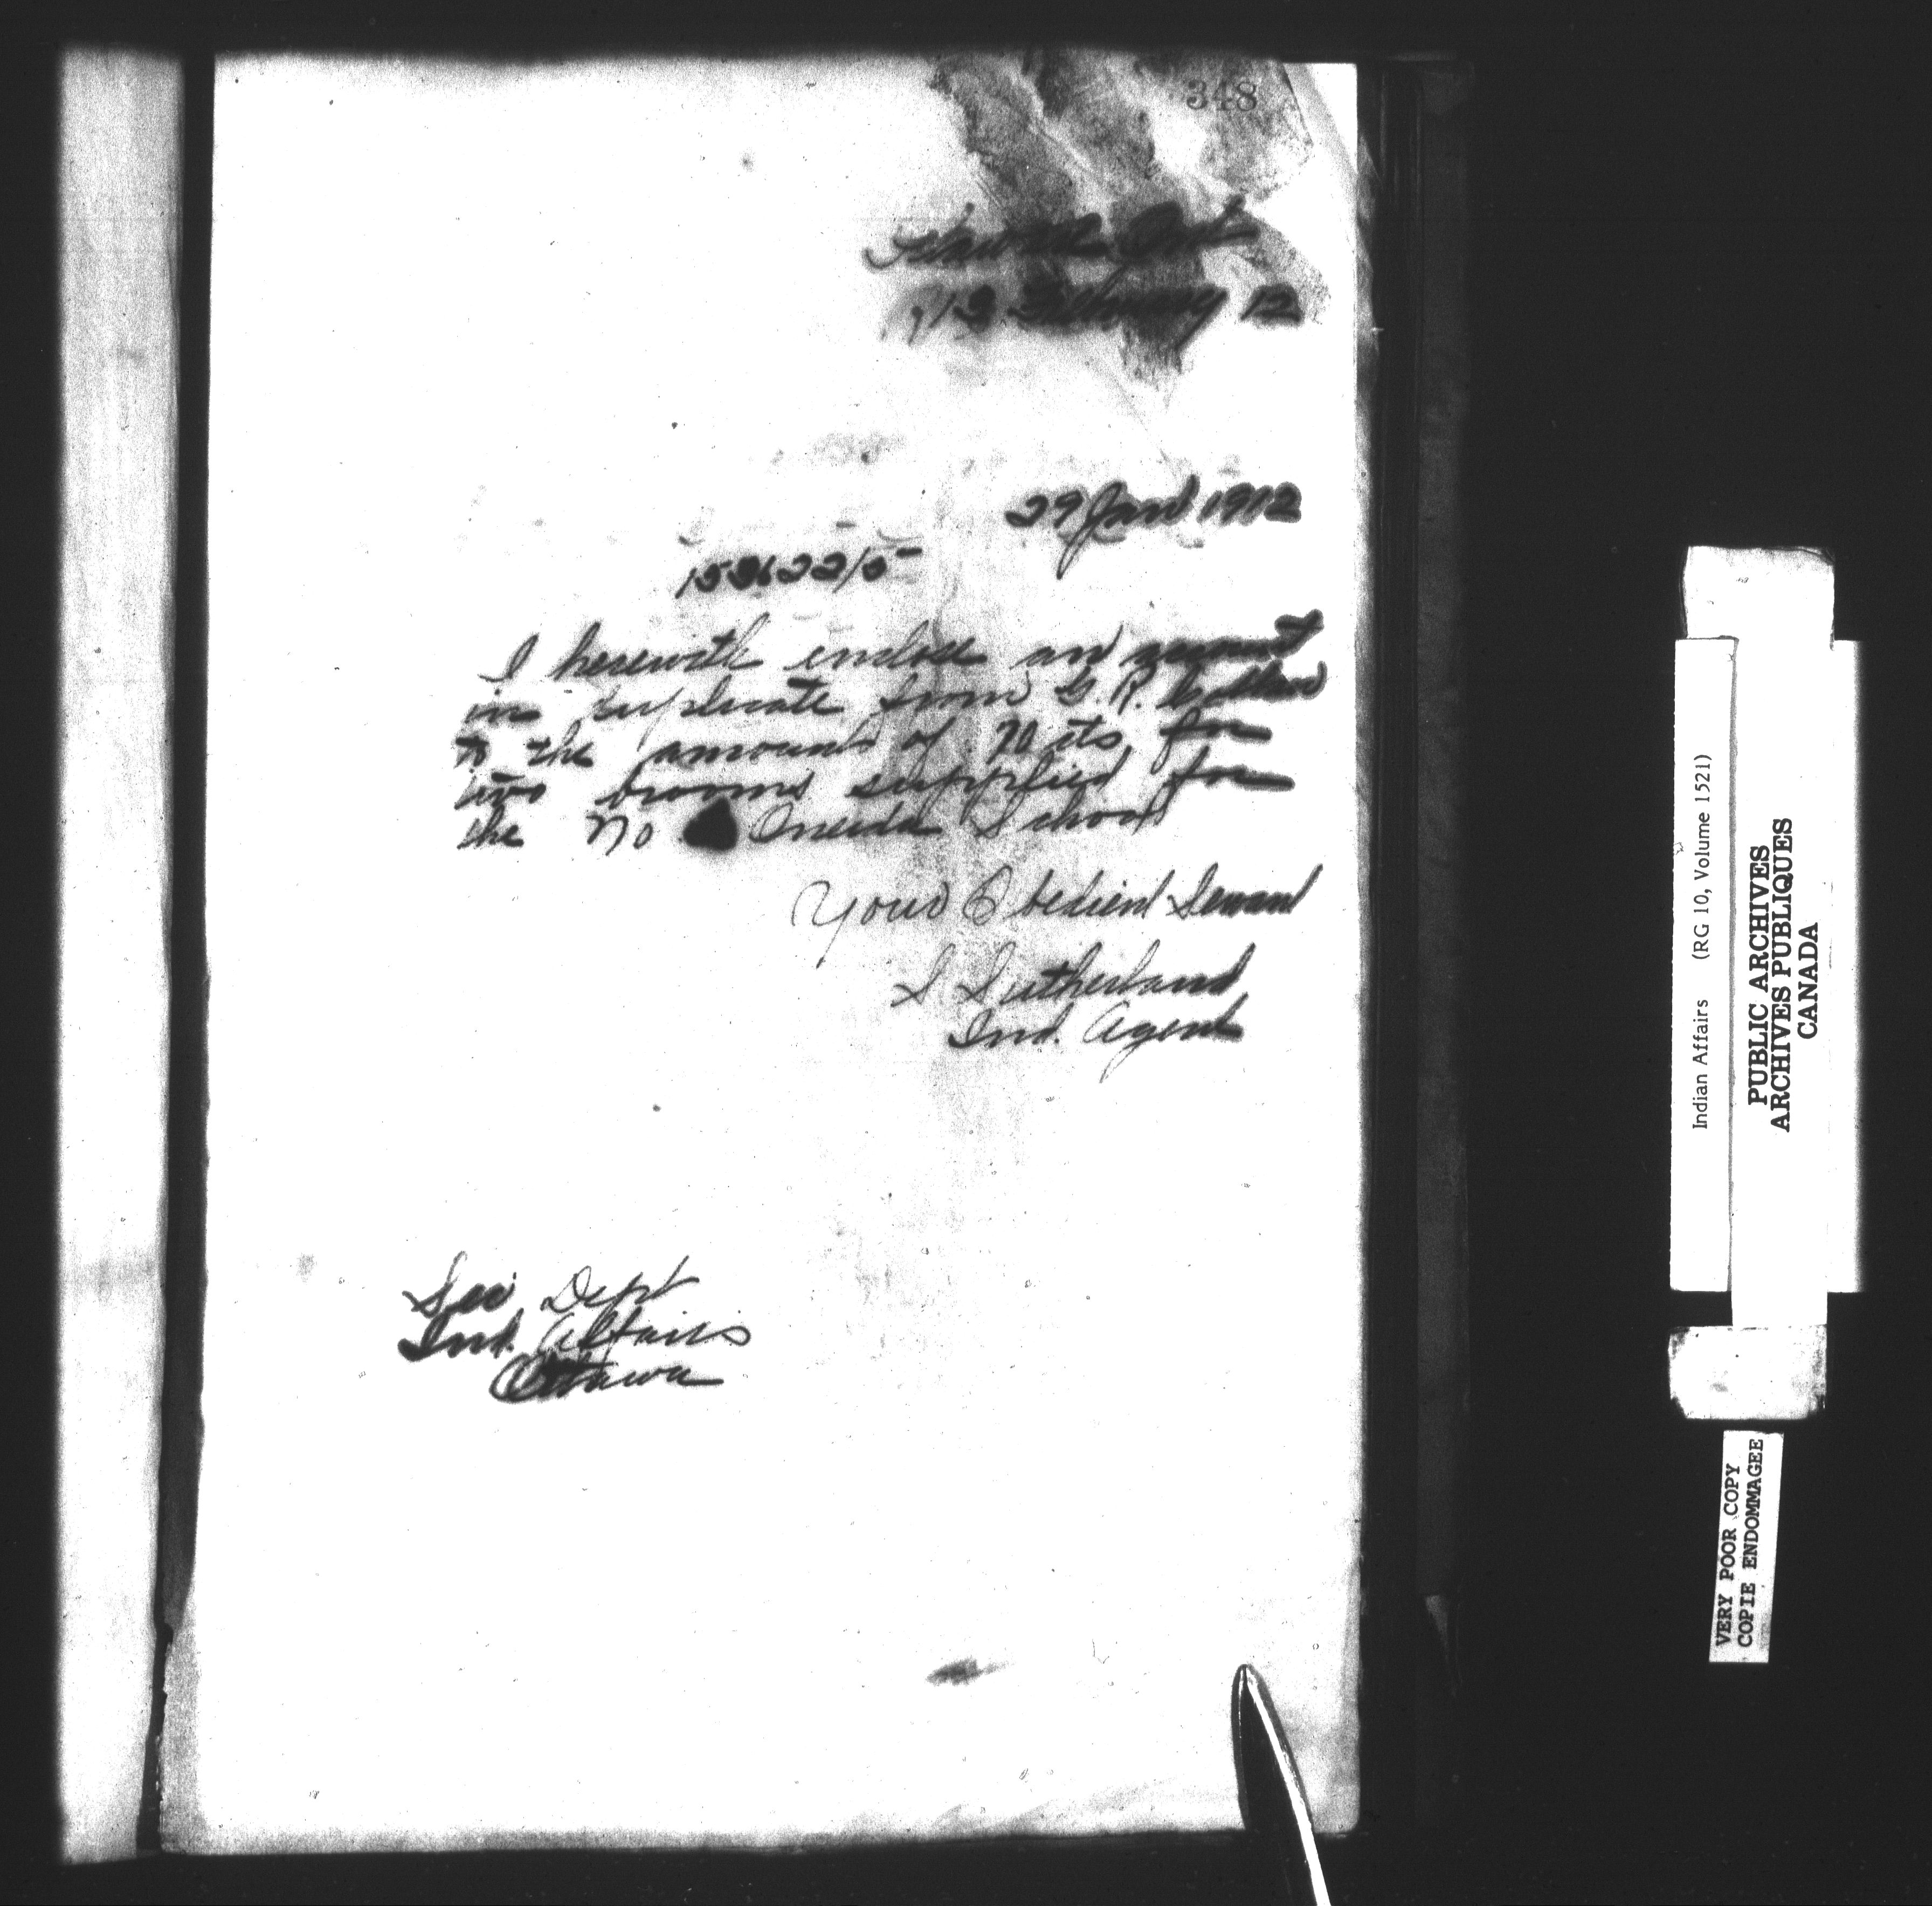 348
Ont
13 February 12
29 Jan 1912
I herewith enclose an account
in duplicate from G. R.
to the amount of 70 cts for
two brooms supplied for
the No Oneida School
Your Obedient Servant
S Sutherland
Ind. Agent
Sec. Dept
Ind. Affairs
Ottawa
Indian Affairs (RG 10, Volume 1521)
PUBLIC ARCHIVES
ARCHIVES PUBLIQUES
CANADA
VERY POOR COPY
COPIE ENDOMMAGEE